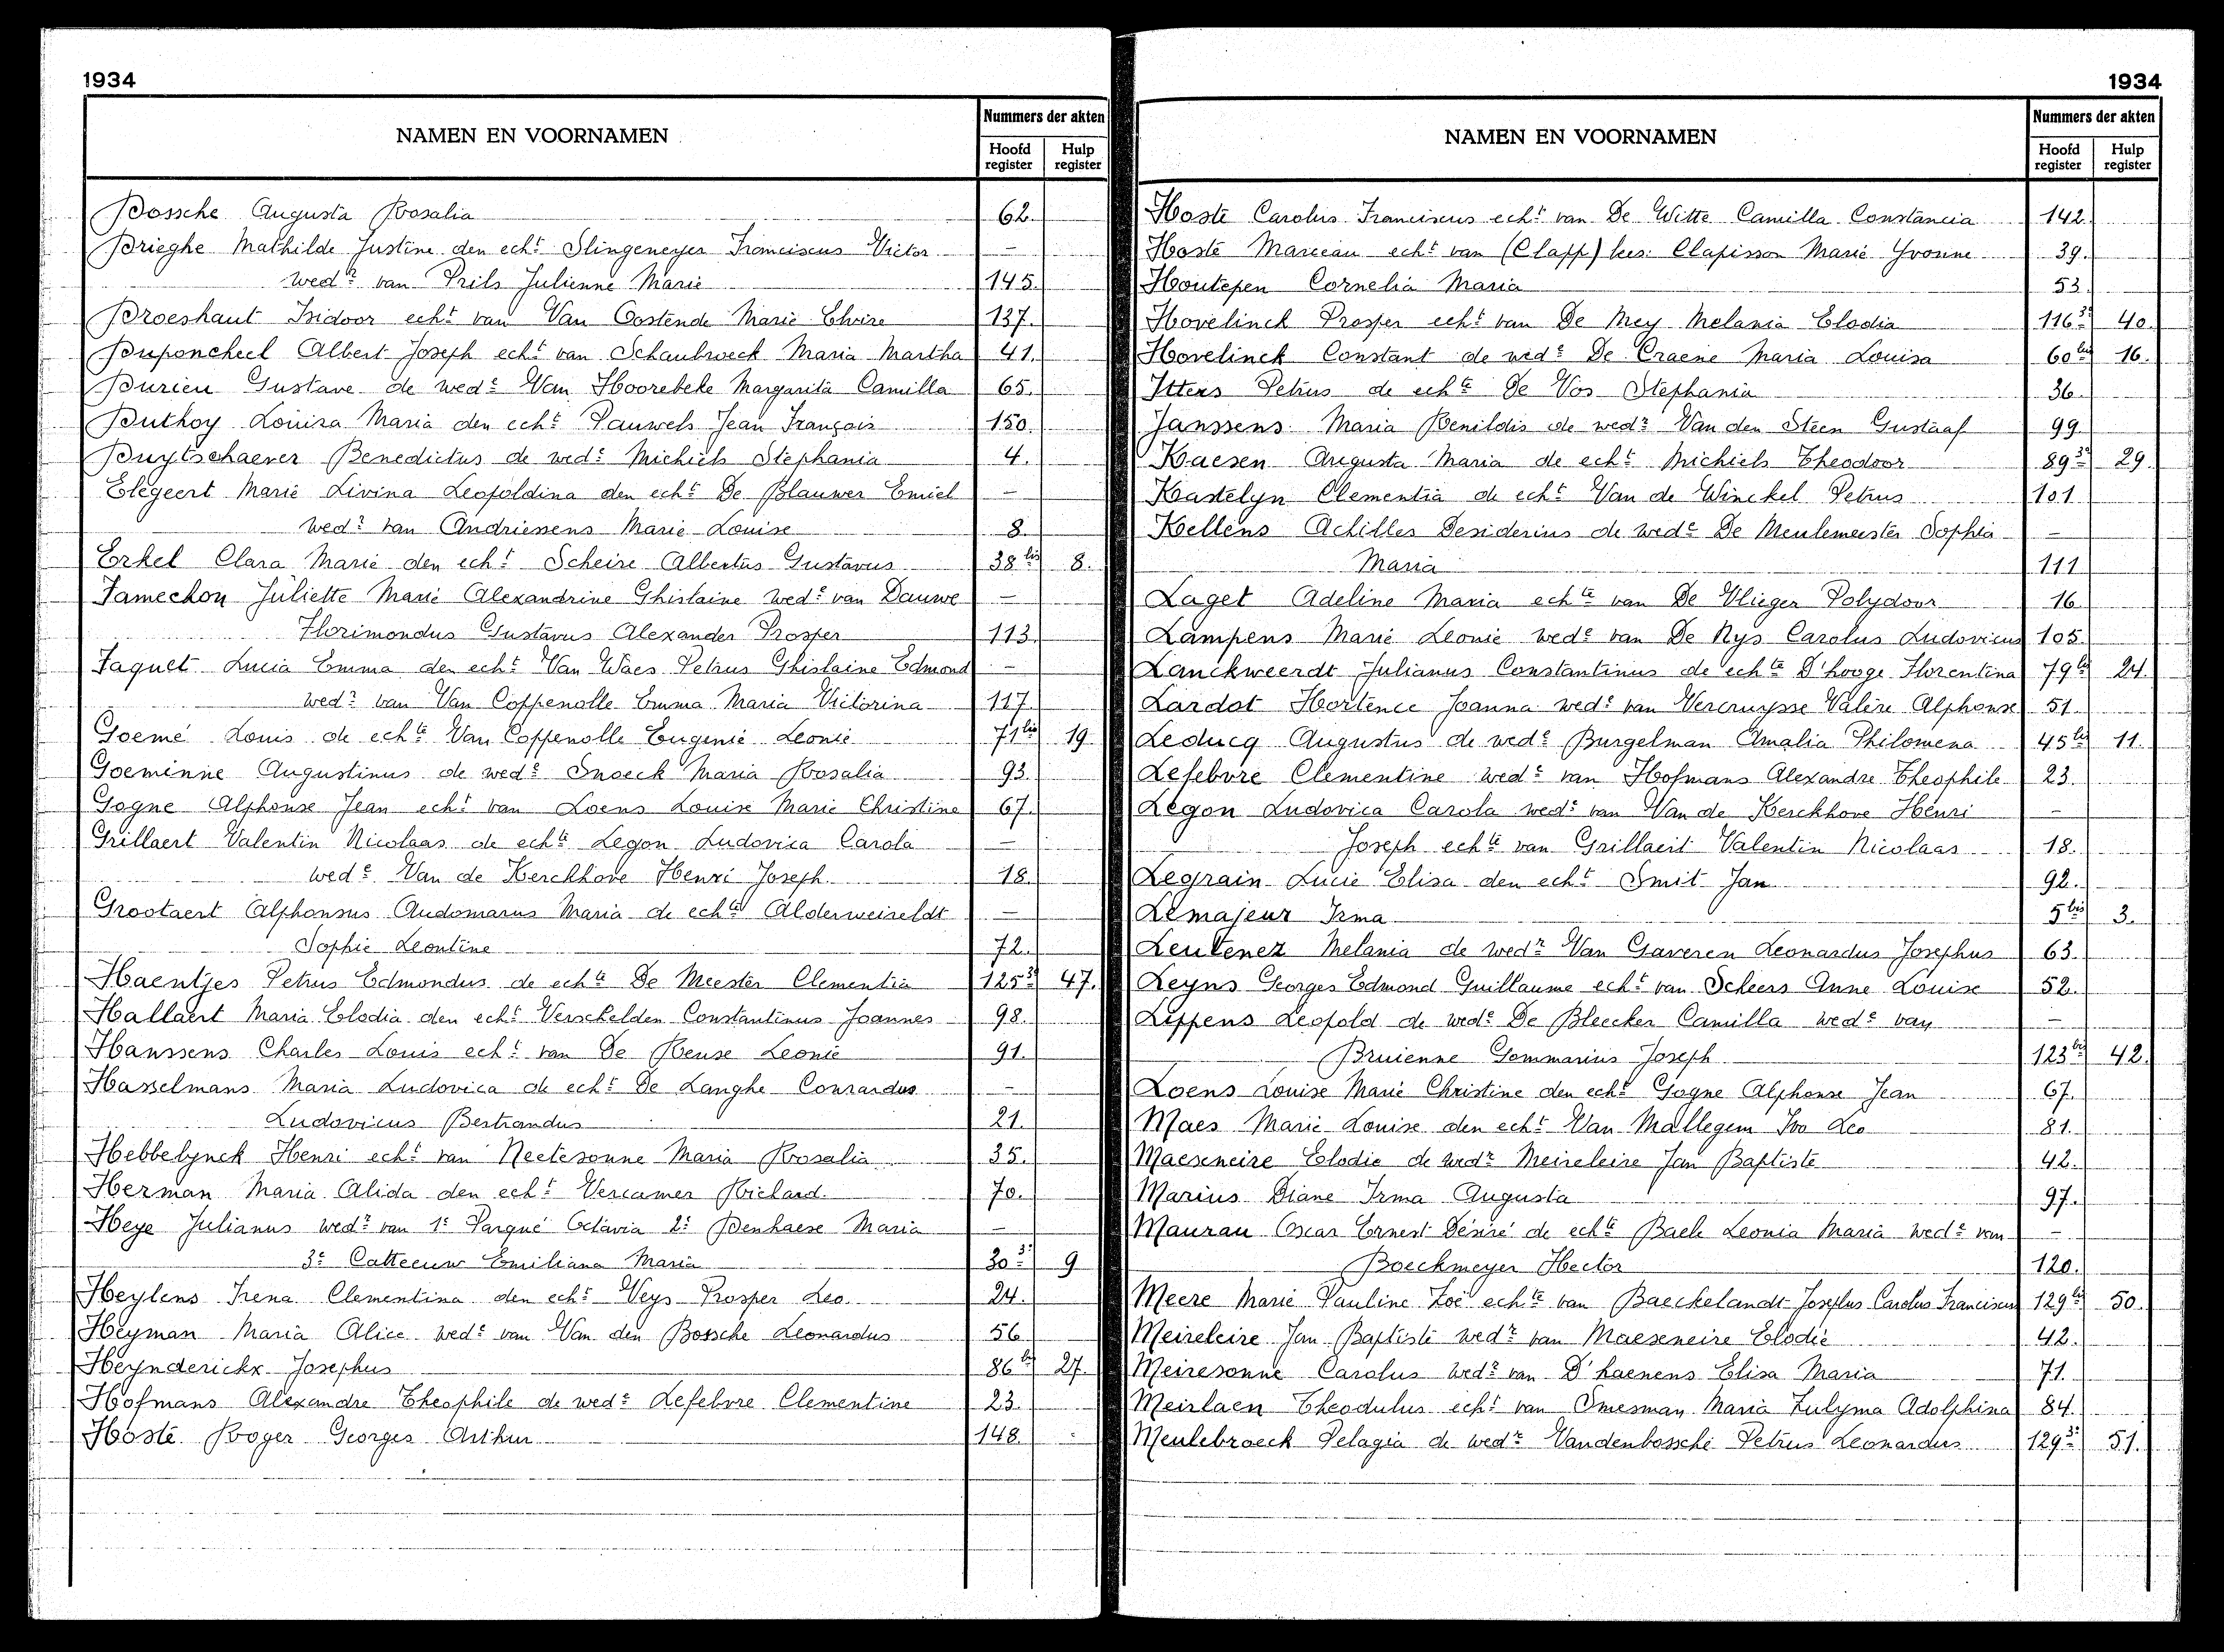 1934
NAMEN EN VOORNAMEN
Nummers der akten
Hoofd register
Hulp register
Dossche Augusta Rosalia 62.
Drieghe Mathilde Justine den echt Slingeneyer Franciscus Victor —
wedr van Prils Julienne Marie 145.
Droeshaut Isidoor echt van Van Oostende Marie Elvire 137.
Duponcheel Albert Joseph echt van Schaubroeck Maria Martha 41.
Durieu Gustave de wede Van Hoorebeke Margarita Camilla 65.
Duthoy Louisa Maria den echt Pauwels Jean François 150.
Duytschaever Benedictus de wede Michiels Stephania 4.
Elegeert Marie Livina Leopoldina den echt De Blauwer Emiel —
wedr van Andriessens Marie Louise 8.
Erkel Clara Marie den echt Scheire Albertus Gustavus 38bis 8.
Famechon Juliette Marie Alexandrine Ghislaine wede van Dauwe —
Florimondus Gustavus Alexander Prosper 113.
Faquet Lucia Emma den echt Van Waes Petrus Ghislaine Edmond —
wedr van Van Coppenolle Emma Maria Victorina 117.
Goemé Louis de echte Van Coppenolle Eugenie Leonie 71bis 19
Goeminne Augustinus de wede Snoeck Maria Rosalia 93.
Gogne Alphonse Jean echt van Loens Louise Marie Christine 67.
Grillaert Valentin Nicolaas de echte Legon Ludovica Carola —
wede Van de Kerckhove Henri Joseph 18.
Grootaert Alphonsus Audomarus Maria de echte Alderweireldt —
Sophie Leontine 72.
Haentjes Petrus Edmondus de echte De Meester Clementia 125 3° 47.
Hallaert Maria Elodia den echt Verschelden Constantinus Joannes 98.
Hanssens Charles Louis echt van De Reuse Leonie 91.
Hasselmans Maria Ludovica de echt De Langhe Conrardus —
Ludovicus Bertrandus 21.
Hebbelynck Henri echt van Neetesonne Maria Rosalia 35.
Herman Maria Alida den echt Vercamer Richard 70.
Heye Julianus wedr van 1e Parqué Octavia 2e Denhaese Maria —
3e Catteeuw Emiliana Maria 30 3° 9
Heylens Irena Clementina den echt Veys Prosper Leo 24.
Heyman Maria Alice wede van Van den Bossche Leonardus 56
Heynderickx Josephus 86bis 27.
Hofmans Alexandre Theophile de wede Lefebvre Clementine 23.
Hoste Roger Georges Arthur 148.
1934
NAMEN EN VOORNAMEN
Nummers der akten
Hoofd register
Hulp register
Hoste Carolus Franciscus echt van De Witte Camilla Constancia 142.
Hoste Marceau echt van (Clapp) lees: Clapisson Marie Yvonne 39.
Houtepen Cornelia Maria 53.
Hovelinck Prosper echt van De Mey Melania Elodia 116 3° 40.
Hovelinck Constant de wede De Craene Maria Louisa 60bis 16.
Itters Petrus de echte De Vos Stephania 36.
Janssens Maria Renildis de wedr Van den Steen Gustaaf 99.
Kaesen Augusta Maria de echt Michiels Theodoor 89 3° 29.
Kastelyn Clementia de echt Van de Winckel Petrus 101.
Kellens Achilles Desiderius de wede De Meulemeester Sophia —
Maria 111
Laget Adeline Maria echte van De Vlieger Polydoor 16.
Lampens Marie Leonie wede van De Nys Carolus Ludovicus 105
Lanckweerdt Julianus Constantinus de echte D'hooge Florentina 79bis 24.
Lardot Hortence Joanna wede van Vercruysse Valère Alphonse 51.
Leducq Augustus de wede Burgelman Amalia Philomena 45bis 11.
Lefebvre Clementine wede van Hofmans Alexandre Theophile 23.
Legon Ludovica Carola wede van Van de Kerckhove Henri —
Joseph echte van Grillaert Valentin Nicolaas 18.
Legrain Lucie Elisa den echt Smit Jan 92.
Lemajeur Irma 5bis 3.
Leutenez Melania de wedr Van Gaveren Leonardus Josephus 63.
Leyns Georges Edmond Guillaume echt van Scheers Anne Louise 52.
Lippens Leopold de wede De Bleecker Camilla wede van —
Bruienne Gommarius Joseph 123bis 42.
Loens Louise Marie Christine den echt Gogne Alphonse Jean 67.
Maes Marie Louise den echt Van Mallegem Ivo Leo 81.
Maeseneire Elodie de wedr Meireleire Jan Baptiste 42.
Marius Diane Irma Augusta 97.
Maurau Oscar Ernest Désiré de echte Baele Leonia Maria wede van —
Boeckmeyer Hector 120.
Meere Marie Pauline Zoë echte van Baeckelandt Josephus Carolus Franciscus 129bis 50.
Meireleire Jan Baptiste wedr van Maeseneire Elodie 42.
Meiresonne Carolus wedr van D'haenens Elisa Maria 71.
Meirlaen Theodulus echt van Smesman Maria Zulyma Adolphina 84.
Meulebroeck Pelagia de wedr Vandenbossche Petrus Leonardus 129 3° 51.